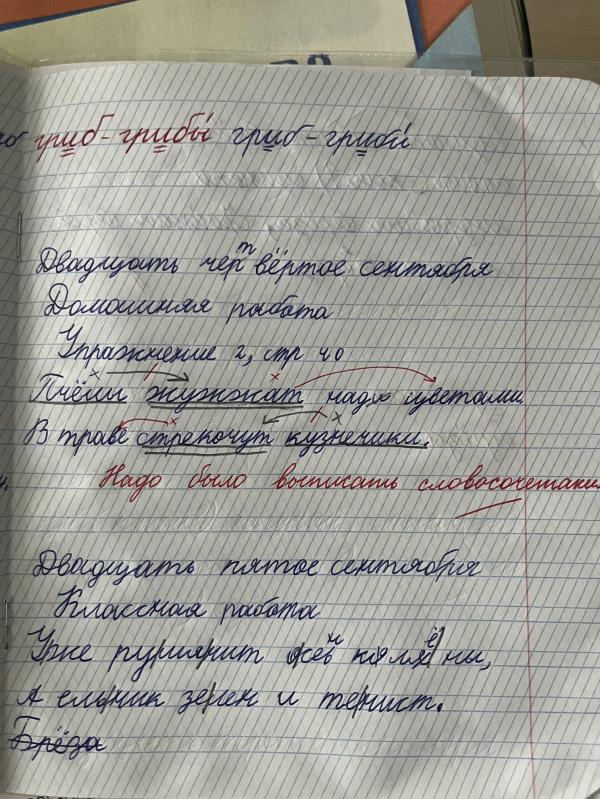 гриб-грибы́ гриб-грибы́
Двадцать чертвёртое сентября
Домашняя работа
Упражнение 2, стр 40
Пчёлы жужжат над цветами.
В траве стрекочут кузнечики.
Надо было выписать словосочетания
Двадцать пятое сентября
Классная работа
Уже румянит
А ельник зелен и тенист.
Брёза